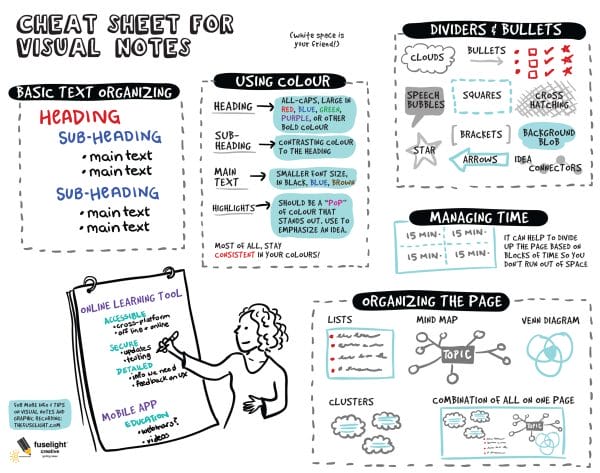 CHEAT SHEET FOR
VISUAL NOTES
(white space is
your friend!)
BASIC TEXT ORGANIZING
HEADING
SUB-HEADING
• main text
• main text
SUB-HEADING
• main text
• main text
USING COLOUR
HEADING
ALL-CAPS, LARGE IN
RED, BLUE, GREEN,
PURPLE, OR OTHER
BOLD COLOUR
SUB-
HEADING
CONTRASTING COLOUR
TO THE HEADING
MAIN
TEXT
SMALLER FONT SIZE,
IN BLACK, BLUE, BROWN
HIGHLIGHTS
SHOULD BE A "POP"
OF COLOUR THAT
STANDS OUT. USE TO
EMPHASIZE AN IDEA.
MOST OF ALL, STAY
CONSISTENT IN YOUR COLOURS!
DIVIDERS & BULLETS
CLOUDS
BULLETS
SPEECH
BUBBLES
SQUARES
CROSS
HATCHING
STAR
[BRACKETS]
BACKGROUND
BLOB
ARROWS
IDEA
CONNECTORS
MANAGING TIME
15 MIN.
15 MIN.
15 MIN.
15 MIN.
IT CAN HELP TO DIVIDE
UP THE PAGE BASED ON
BLOCKS OF TIME SO YOU
DON'T RUN OUT OF SPACE
ONLINE LEARNING TOOL
ACCESSIBLE
• cross-platform
• off line + online
SECURE
• updates
• testing
DETAILED
• info we need
• feedback on UX
MOBILE APP
EDUCATION
• webinars?
• videos
FOR MORE INFO & TIPS
ON VISUAL NOTES AND
GRAPHIC RECORDING:
THEFUSELIGHT.COM
fuselight
creative
ORGANIZING THE PAGE
LISTS
MIND MAP
TOPIC
VENN DIAGRAM
CLUSTERS
COMBINATION OF ALL ON ONE PAGE
TOPIC